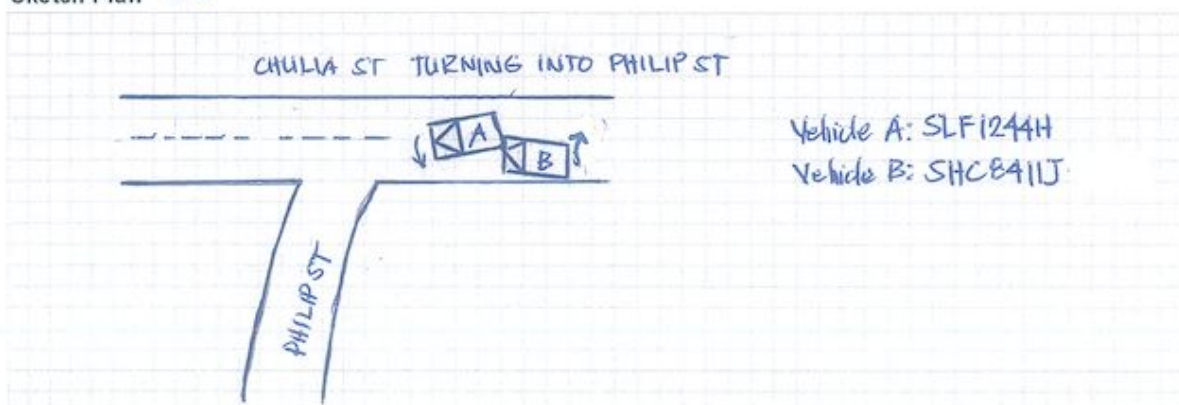 CHULIA ST TURNING INTO PHILIP ST
Vehicle A: SLF1244H
Vehicle B: SHC8411J
A
B
PHILIP ST